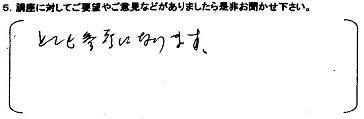 5. 講座に対してご要望やご意見などがありましたら是非お聞かせ下さい。
とても参考になります。